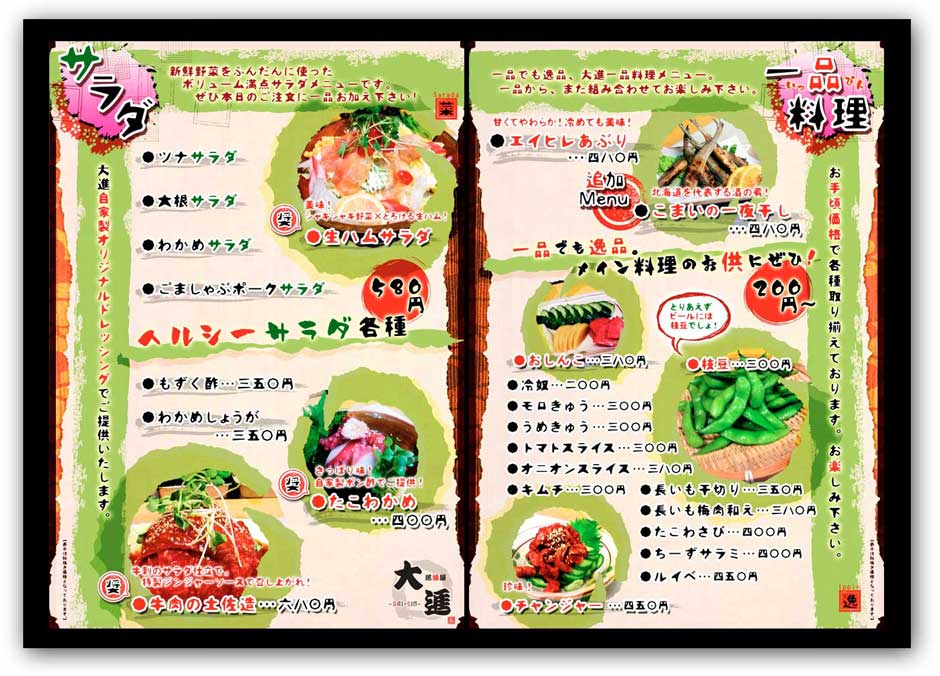 サラダ
新鮮野菜をふんだんに使った
ボリューム満点サラダメニューです。
ぜひ本日のご注文に一品お加え下さい!
Sarada
菜
大進自家製オリジナルドレッシングでご提供いたします。
●ツナサラダ
●大根サラダ
●わかめサラダ
●ごましゃぶポークサラダ
奨
美味!
シャキシャキ野菜×とろける生ハム!
●生ハムサラダ
580円
ヘルシーサラダ各種
●もずく酢…三五〇円
●わかめしょうが
…三五〇円
奨
さっぱり味!
自家製ポン酢でご提供!
●たこわかめ
…四〇〇円
奨
牛刺のサラダ仕立て。
特製ジンジャーソースで召し上がれ!
●牛肉の土佐造…六八〇円
居酒屋
大進
-DAI・SIN-
一品
いっぴん
料理
一品でも逸品、大進一品料理メニュー。
一品から、また組み合わせてお楽しみ下さい。
お手頃価格で各種取り揃えております。お楽しみ下さい。
甘くてやわらか!冷めても美味!
●エイヒレあぶり
…四八〇円
追加
Menu
北海道を代表する酒の肴!
●こまいの一夜干し
…四八〇円
一品でも逸品。
メイン料理のお供にぜひ!
200円~
とりあえず
ビールには
枝豆でしょ!
●おしんこ…三八〇円
●枝豆…三〇〇円
●冷奴…二〇〇円
●モロきゅう…三〇〇円
●うめきゅう…三〇〇円
●トマトスライス…三〇〇円
●オニオンスライス…三八〇円
●キムチ…三〇〇円
●長いも千切り…三五〇円
●長いも梅肉和え…三八〇円
●たこわさび…四〇〇円
●ちーずサラミ…四〇〇円
●ルイベ…四五〇円
珍味!
●チャンジャー…四五〇円
Ippin
逸